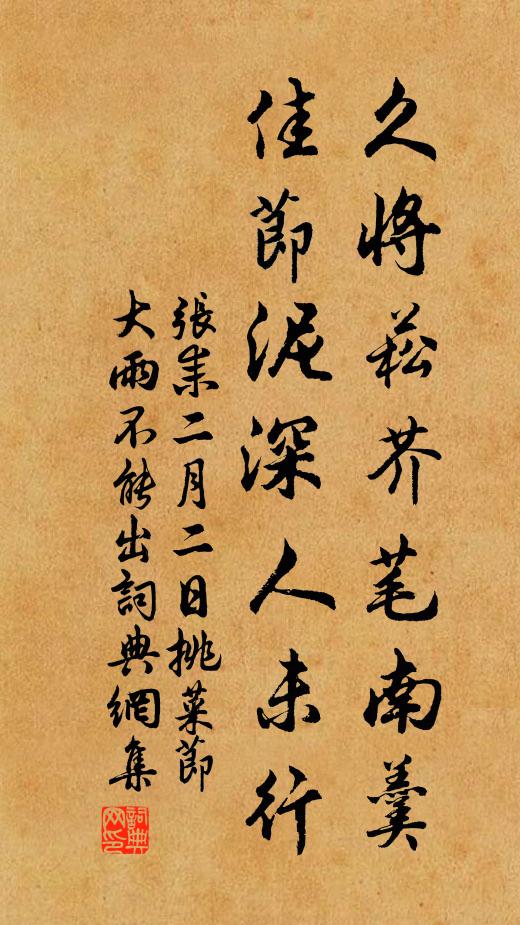 久將菘芥芼南羹
佳節泥深人未行
張耒二月二日挑菜節
大雨不能出詞典網集
詞典网印